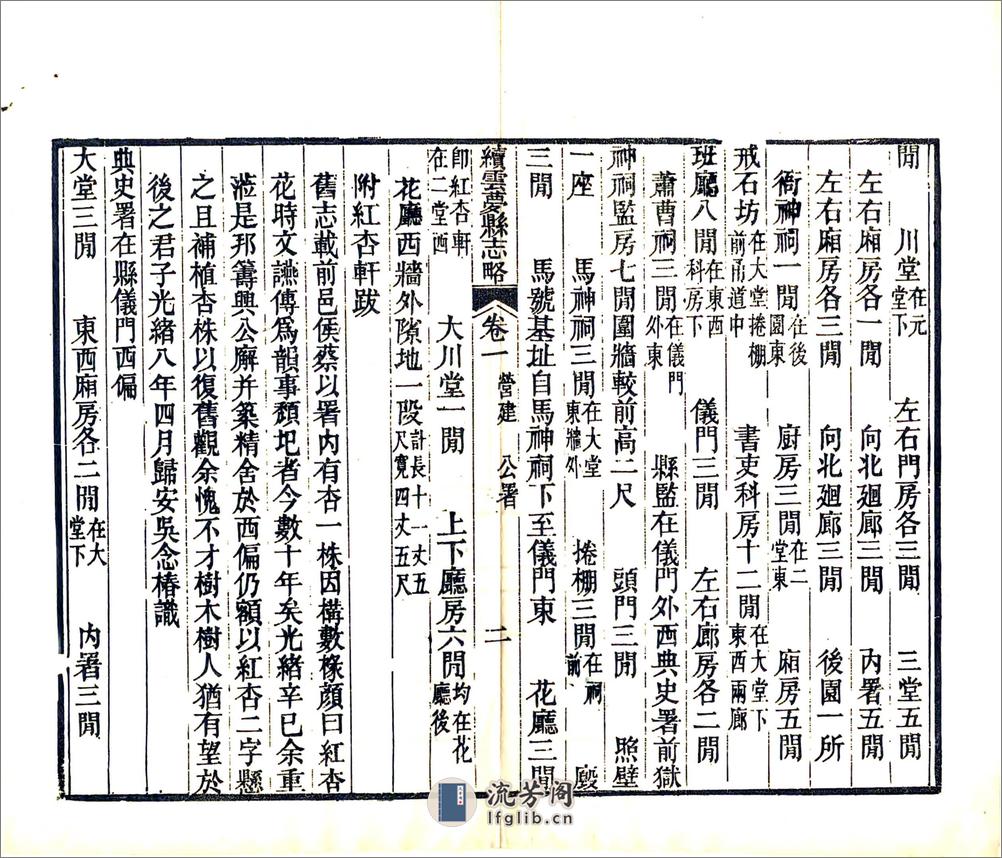 閒　川堂在元堂下　左右門房各三閒　三堂五閒
左右廂房各一閒　向北廻廊三閒　內署五閒
左右廂房各三閒　向北廻廊三閒　後園一所
衙神祠一閒在後園東　廚房三閒在二堂東　廂房五閒
戒石坊在大堂捲棚前甬道中　書吏科房十二閒在大堂下東西兩廊
班廳八閒在東西科房下　儀門三閒　左右廊房各二閒
蕭曹祠三閒在儀門外東　縣監在儀門外西典史署前獄
神祠監房七閒圍牆較前高二尺　頭門三閒　照壁
一座　馬神祠三閒在大堂東牆外　捲棚三閒在祠前　廏
三閒　馬號基址自馬神祠下至儀門東　花廳三閒
續雲夢縣志略　卷一　營建　公署　二
卽紅杏軒在二堂西　大川堂一閒　上下廳房六閒均在花廳後
花廳西牆外隙地一段計長十一丈五尺寬四丈五尺
附紅杏軒跋
舊志載前邑侯蔡以署內有杏一株因構數椽顏曰紅杏
花時文讌傳爲韻事頽圯者今數十年矣光緒辛巳余重
涖是邦籌興公廨并築精舍於西偏仍額以紅杏二字懸
之且補植杏株以復舊觀余愧不才樹木樹人猶有望於
後之君子光緒八年四月歸安吳念椿識
典史署在縣儀門西偏
大堂三閒　東西廂房各二閒在大堂下　內署三閒
流芳阁
lfglib.cn